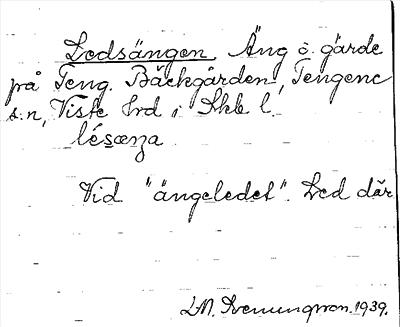 Ledsängen, Äng o. gärde
på Teng. Bäckgården, Tengene
s:n, Viste hrd i Skb l.
lésæŋa
Vid "ängeledet". Led där
LM. Svenungsson. 1939.